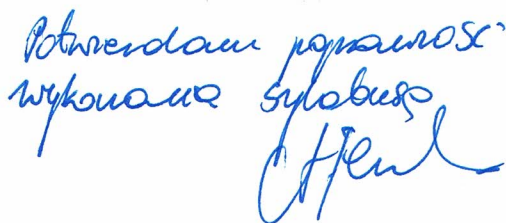 Potwierdzam poprawność
wykonania sylabusa